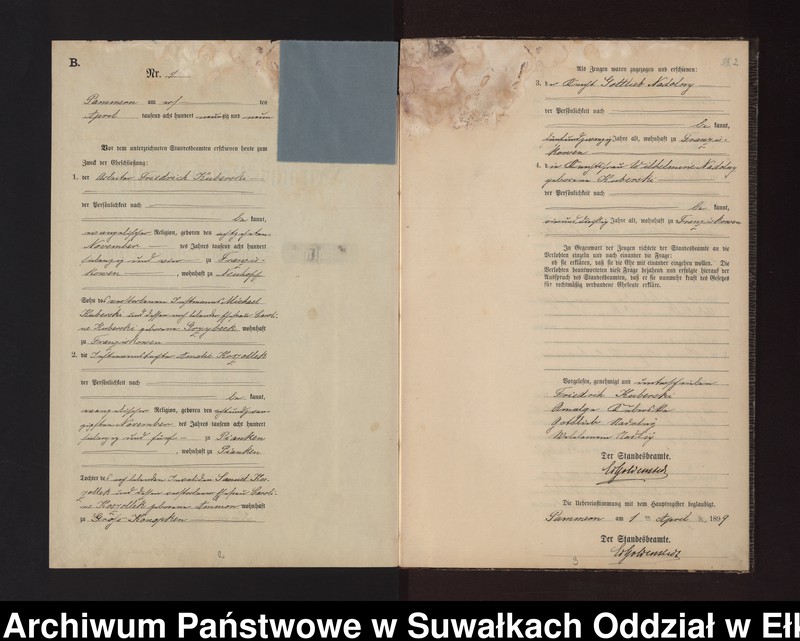 B.
Nr. 9
Sammeon am
April tausend acht hundert neunzig und neun
Vor dem unterzeichneten Standesbeamten erschienen heute zum
Zweck der Eheschließung:
1. der Arbeiter Friedrich Kuberski
der Persönlichkeit nach
be kannt,
evangelischer Religion, geboren den
November des Jahres tausend acht hundert
siebenzig und zu Franzis-
kowen, wohnhaft zu Neuhoff
Sohn des verstorbenen Instmanns Michael
Kuberski und dessen noch lebender Ehefrau Caroli-
ne Kuberski geborene Grzybeck wohnhaft
zu Franziskowen
2. die Instmannstochter Amalie Kozollek
der Persönlichkeit nach
be kannt,
evangelischer Religion, geboren den achtundzwan-
zigsten November des Jahres tausend acht hundert
siebenzig und fünf zu Pianken
, wohnhaft zu Pianken
Tochter des noch lebenden Invaliden Samuel Koz-
ollek und dessen verstorbener Ehefrau Caroli-
ne Kozollek geborene wohnhaft
zu Groß Konopken
Als Zeugen waren zugezogen und erschienen:
3. der Knecht Gottlieb Nadolny
der Persönlichkeit nach
be kannt,
fünfundzwanzig Jahre alt, wohnhaft zu Franzis-
kowen
4. die Knechtsfrau Wilhelmine Nadolny
geborene Kuberski
der Persönlichkeit nach
be kannt,
einunddreißig Jahre alt, wohnhaft zu Franziskowen
In Gegenwart der Zeugen richtete der Standesbeamte an die
Verlobten einzeln und nach einander die Frage:
ob sie erklären, daß sie die Ehe mit einander eingehen wollen. Die
Verlobten beantworteten diese Frage bejahend und erfolgte hierauf der
Ausspruch des Standesbeamten, daß er sie nunmehr kraft des Gesetzes
für rechtmäßig verbundene Eheleute erkläre.
Vorgelesen, genehmigt und unterschrieben
Friedrich Kuberski
Gottlieb
Der Standesbeamte.
Die Uebereinstimmung mit dem Hauptregister beglaubigt.
Sammeon am 1 April 1899
Der Standesbeamte.
Archiwum Państwowe w Suwałkach Oddział w Eł